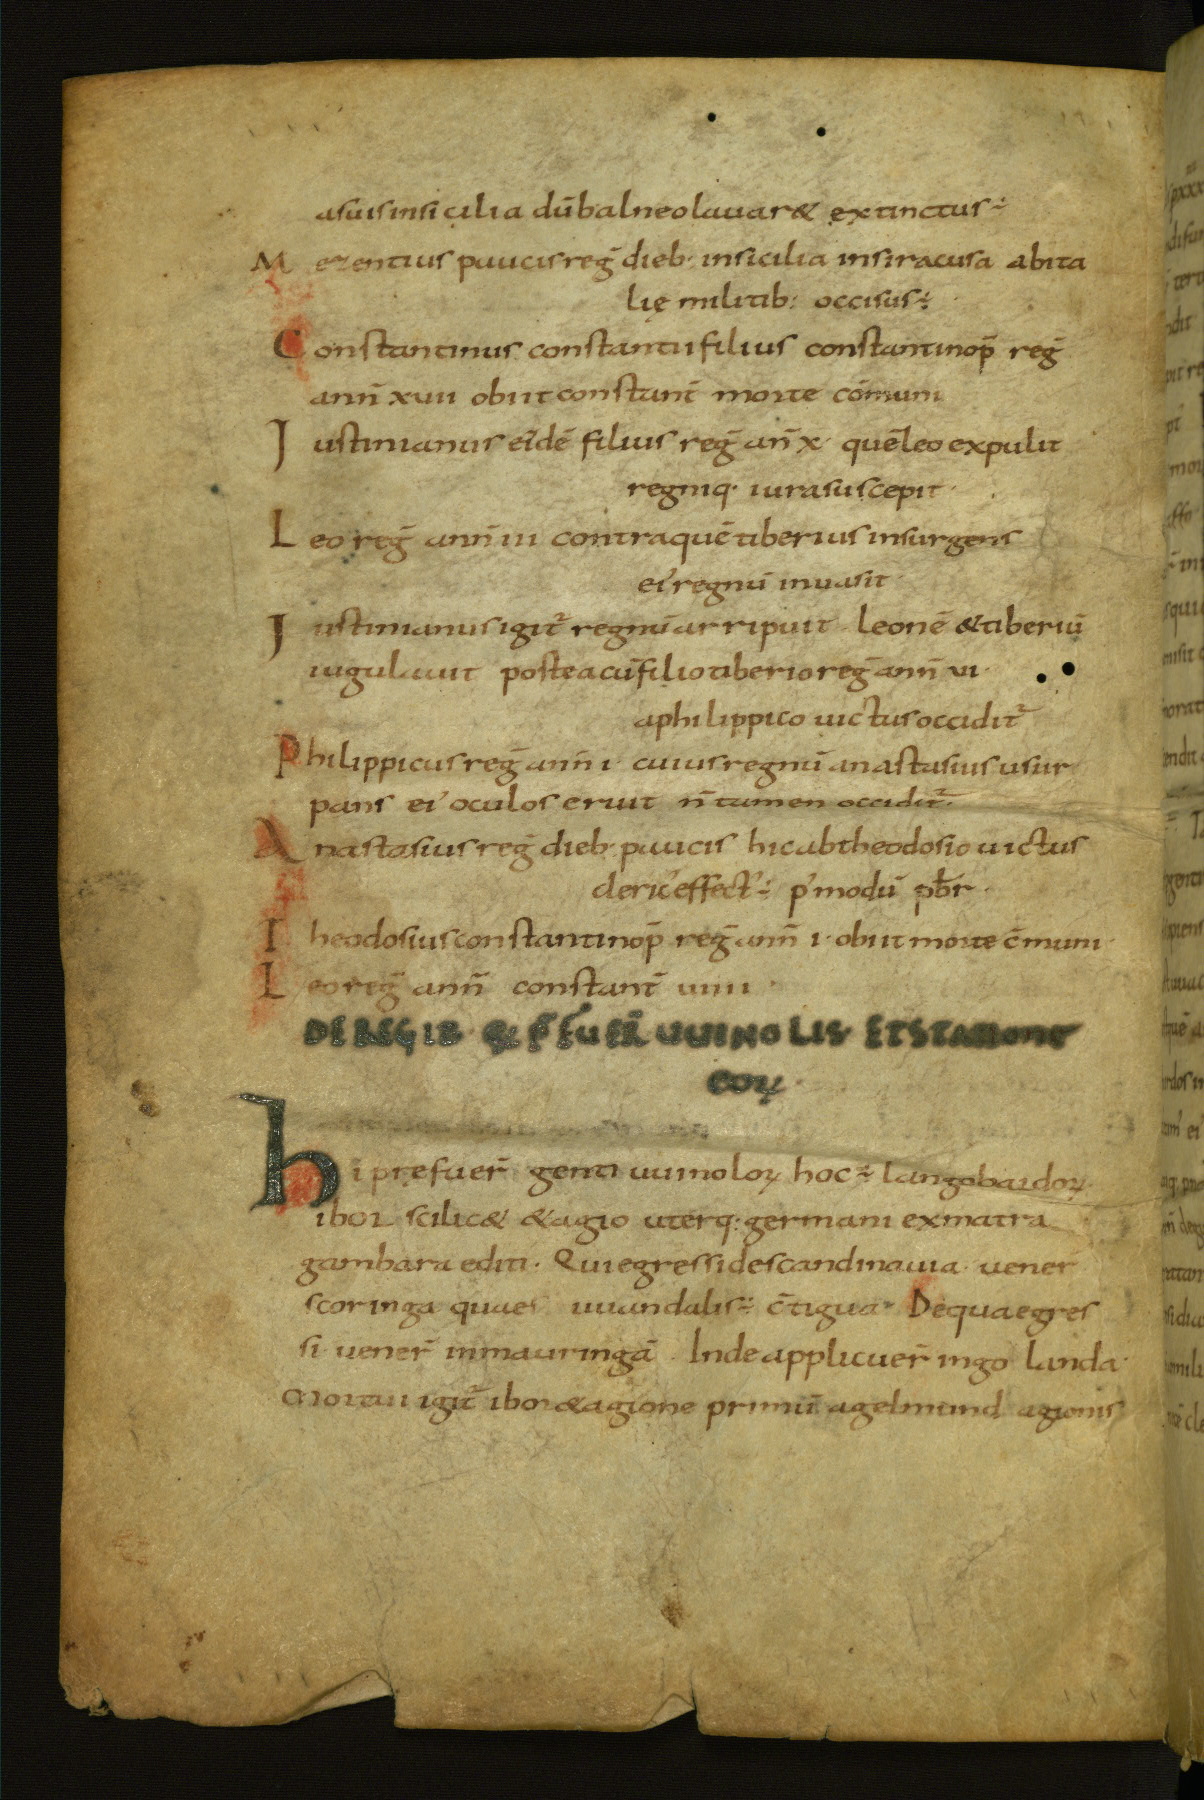 asuis insicilia dū balneo lauar& extinctus
Mezentius paucis reḡ dieb· insicilia insiracusa abita
lię militib: occisus
Constantinus constantii filius constantinop̄ reḡ
ann̄ xvii obiit constant̄ morte cōmuni
Iustinianus eidē filius reḡ an̄ x· quē leo expulit
regniq· iura suscepit·
Leo reḡ ann̄ iii contra quē tiberius insurgens
ei' regnū inuasit·
Iustinianus igit᷑ regnū arripuit leonē & tiberiū
iugulauit postea cū filio tiberio reḡ ann̄ vi·
aphilippico uictus occidit᷑
Philippicus reḡ ann̄ i· cuius regnū anastasius usur
pans ei' oculos eruit n̄ tamen occidit᷑·
Anastasius reḡ dieb· paucis hic abtheodosio uictus
cleric' effect' p' modū pb̄r·
Theodosius constantinop̄ reḡ ann̄ i· obiit morte c̄muni·
Leo reḡ ann̄ constant̄ uiiii·
DE REGIB· Q· P̄FUER̄ UUINOLIS· ET STATIONE
EOꝜ·
hi prefuer̄ genti uuinoloꝝ hoc ÷ langobardoꝝ·
ibor scilic& & agio uterq: germani ex matra
gambara editi· Qui egressi descandinauia uener̄
scoringa quae uuandalis c̄tigua· De qua egres
si uener̄ inmauringā. Inde applicuer̄ ingo landa·
Mortui igit᷑ ibor & agione primū agelmund agionis